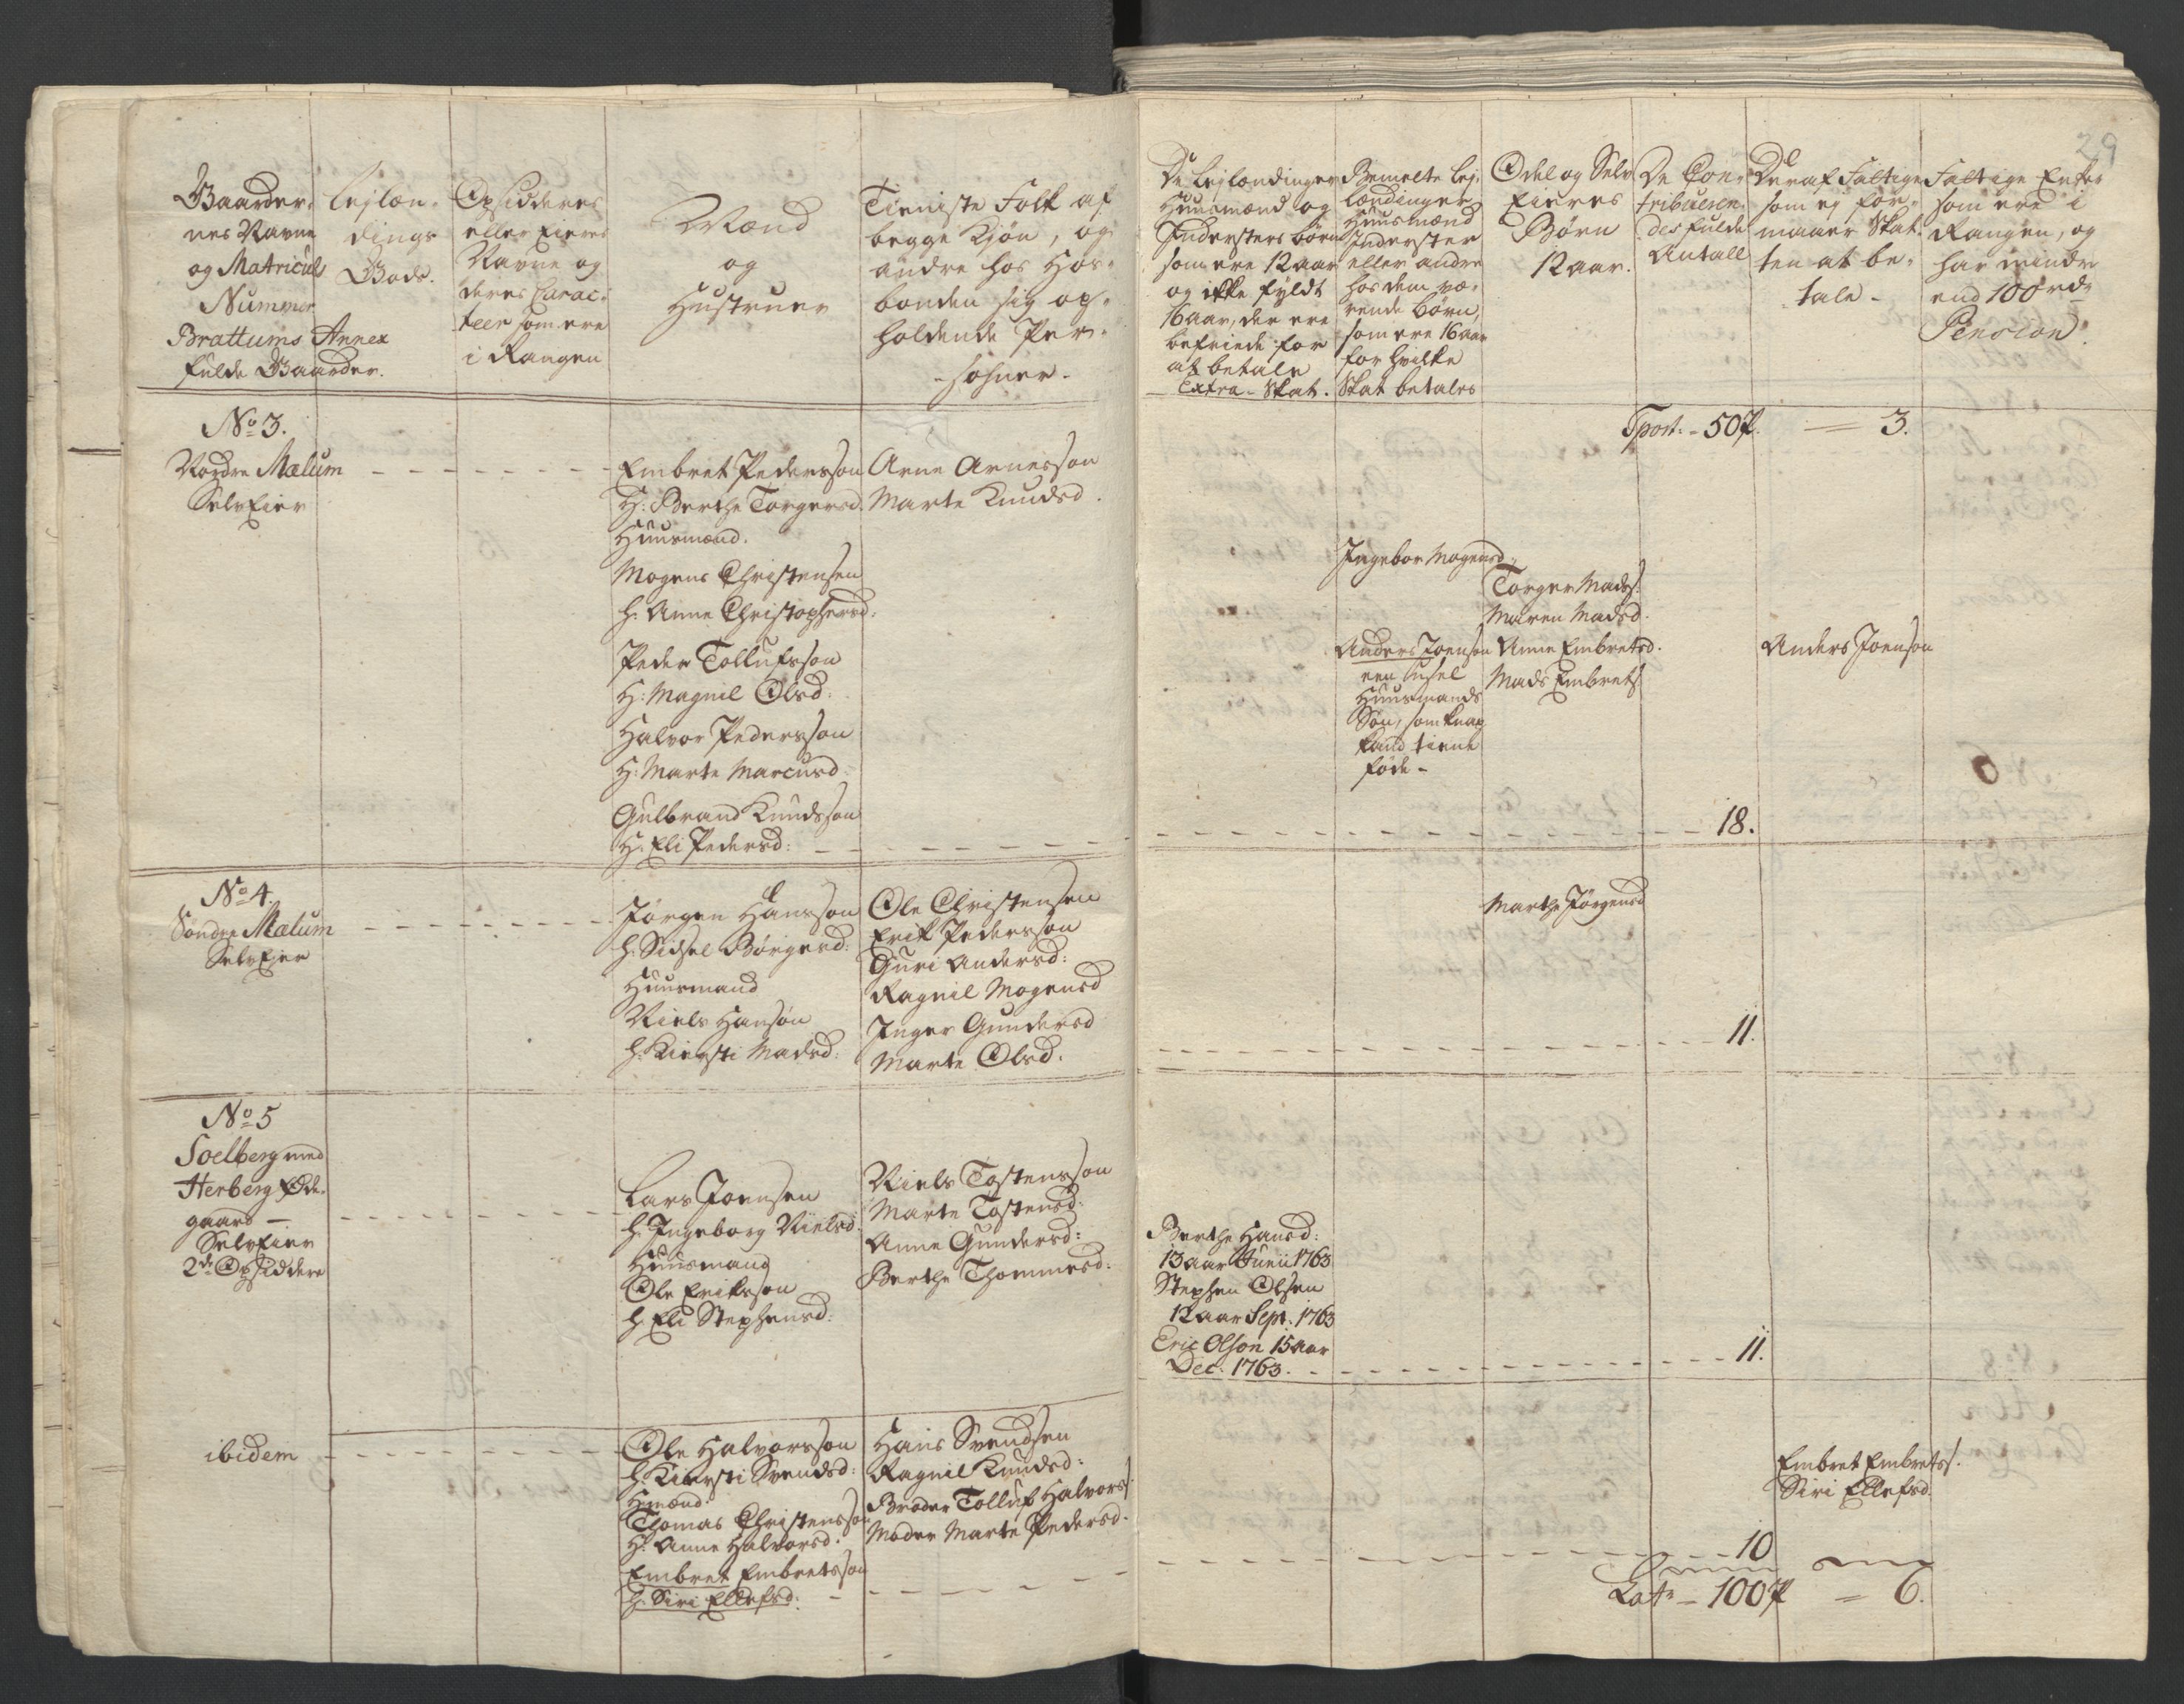 29
Gaarder-
nes Navne
og Matricul
Nummer
Brattums Annex
fulde Gaarder.
Lejlæn-
dings
Gods.
Opsidderes
eller Eieres
Navne og
deres Carac-
teer som ere
i Rangen
Mænd
og
Hustruer
Tieniste Folk af
begge Kjøn, og
andre hos Hos-
bonden sig op-
holdende Per-
sohner.
De Lejlændinger
Huusmænd og
Indersters børn
som ere 12 aar
og ikke fyldt
16 aar, der ere
befriede for
at betale
Extra-Skat.
Bemelte Lej-
lændinger
Huusmænd
Inderster
eller andre
hos dem væ-
rende børn,
som ere 16 aar
for hvilke
Skat betales
Odel og Selv
Eieres
Børn
12 aar.
De Con-
tribueren-
des fulde
Antall
Deraf Fattige
som ej for-
maaer Skat-
ten at be-
tale
Fattige Enker
som ere i
Rangen, og
har mindre
end 100 rdr
Pension.
Tport: 50 p. 3.
No 3.
Nordre Mælum
SelvEier
Embret Pedersson
H: Berthe Torgersd.
Huusmænd.
Mogens Christensen
h. Anne Christophersd:
Peder Tollufsson
H: Magnil Olsd:
Halvor Pedersson
H: Marte Marcusd
Gulbrand Knudsson
H: Eli Pedersd:
Arne Arnesson
Marte Knudsd.
Ingebor Mogensd:
Anders Joenson
een usel
Huusmands
Søn, som knap
kand tiene
føde
Torger Madss.
Maren Madsd.
Anne Embretsd.
Mads Embrets
Anders Joenson
18.
No 4.
Søndre Mælum
SelvEier
Jørgen Hansson
h. Sidsel Børgersd:
Huusmand
Niels Hansøn
h. Kiersti Madsd:
Ole Christensen
Erik Pedersson
Guri Andersd:
Ragnil Mogensd
Inger Gundersd
Marte Olsd.
Marthe Jørgensd
11.
No 5
Soelberg med
Herberg Øde-
gaard
SelvEier
2de Opsiddere
Lars Joensen
h. Ingeborg Nielsd.
Huusmand
Ole Eriksson
h. Eli Stephensd:
Niels Tostensson
Marte Tostensd:
Anne Gundersd:
Berthe Thommesd:
Berthe Hansd:
13 aar Junii 1763
Stephen Olsen
12 aar Sept. 1763
Eric Olson 15 aar
Dec. 1763.
11.
ibidem
Ole Halvorsson
h. Kiersti Svendsd:
Hmænd:
Thomas Christensson
H: Anne Halvorsd.
Embret Embretsson
h. Siri Ellefsd:
Hans Svendsen
Ragnil Knudsd:
Broder Tolluf Halvors
Moder Marte Pedersd.
Embret Embretss.
Siri Ellefsd.
10
Lat: 100 p 6.